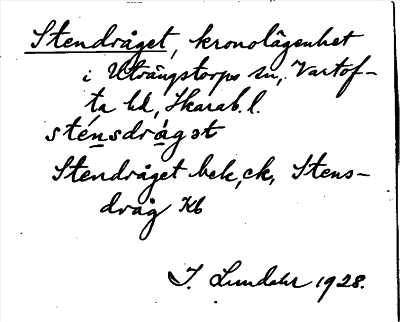 Stendråget, kronolägenhet
i Utvängstorps sn, Vartof-
ta hd, Skarab. l.
sténsdràgət
Stendråget bek, ck, Stens-
dråg Kb
I. Lundahl 1928.